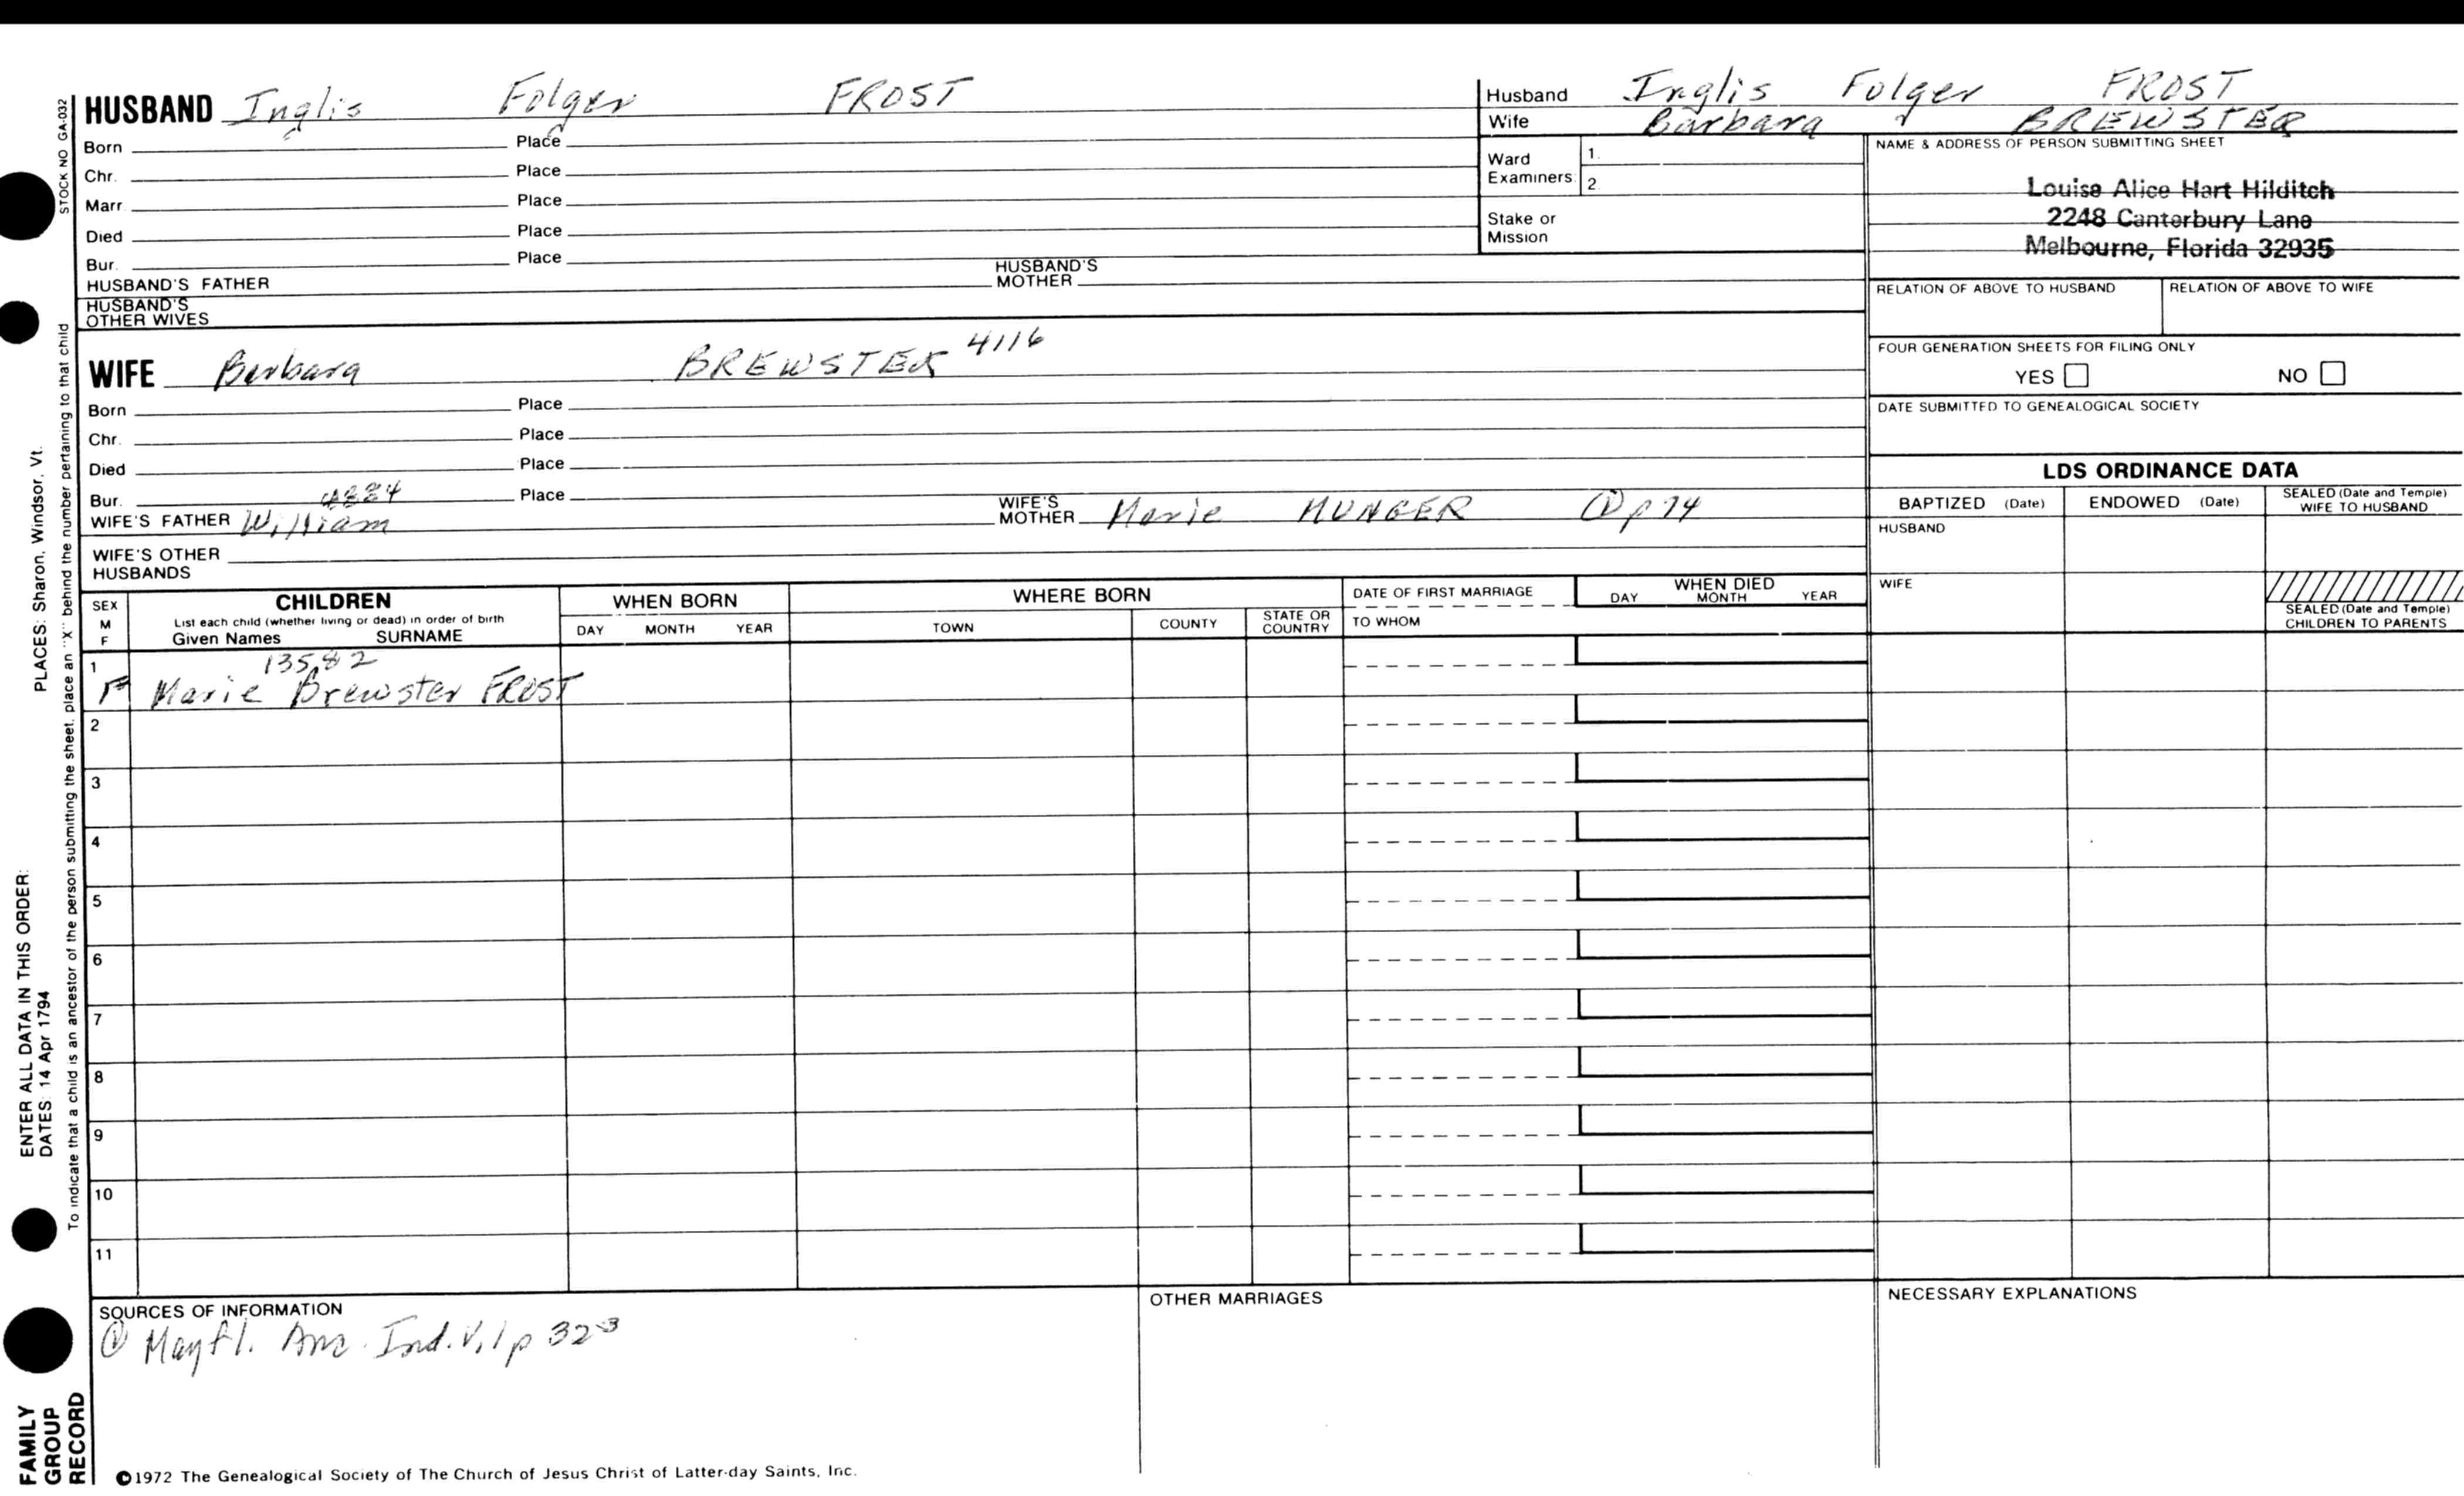 HUSBAND Inglis Folger FROST
Born Place
Chr. Place
Marr. Place
Died Place
Bur. Place
HUSBAND'S FATHER HUSBAND'S MOTHER
HUSBAND'S OTHER WIVES
Husband Inglis Folger FROST
Wife Barbara BREWSTER
Ward Examiners 1.
2.
Stake or Mission
NAME & ADDRESS OF PERSON SUBMITTING SHEET
Louise Alice Hart Hilditch
2248 Canterbury Lane
Melbourne, Florida 32935
RELATION OF ABOVE TO HUSBAND RELATION OF ABOVE TO WIFE
FOUR GENERATION SHEETS FOR FILING ONLY
YES NO
DATE SUBMITTED TO GENEALOGICAL SOCIETY
WIFE Barbara BREWSTER 4116
Born Place
Chr. Place
Died Place
Bur. Place
WIFE'S FATHER William WIFE'S MOTHER Marie MUNGER ① p 74
WIFE'S OTHER HUSBANDS
LDS ORDINANCE DATA
BAPTIZED (Date) ENDOWED (Date) SEALED (Date and Temple) WIFE TO HUSBAND
HUSBAND
WIFE
SEALED (Date and Temple) CHILDREN TO PARENTS
SEX M F
CHILDREN
List each child (whether living or dead) in order of birth
Given Names SURNAME
WHEN BORN
DAY MONTH YEAR
WHERE BORN
TOWN COUNTY STATE OR COUNTRY
DATE OF FIRST MARRIAGE
TO WHOM
WHEN DIED
DAY MONTH YEAR
13582
1 F Marie Brewster FROST
2
3
4
5
6
7
8
9
10
11
SOURCES OF INFORMATION
① Mayfl. Anc. Ind. V.1 p 323
OTHER MARRIAGES
NECESSARY EXPLANATIONS
©1972 The Genealogical Society of The Church of Jesus Christ of Latter-day Saints, Inc.
STOCK NO. GA-032
To indicate that a child is an ancestor of the person submitting the sheet, place an "X" behind the number pertaining to that child
ENTER ALL DATA IN THIS ORDER:
DATES: 14 Apr 1794
PLACES: Sharon, Windsor, Vt.
FAMILY
GROUP
RECORD